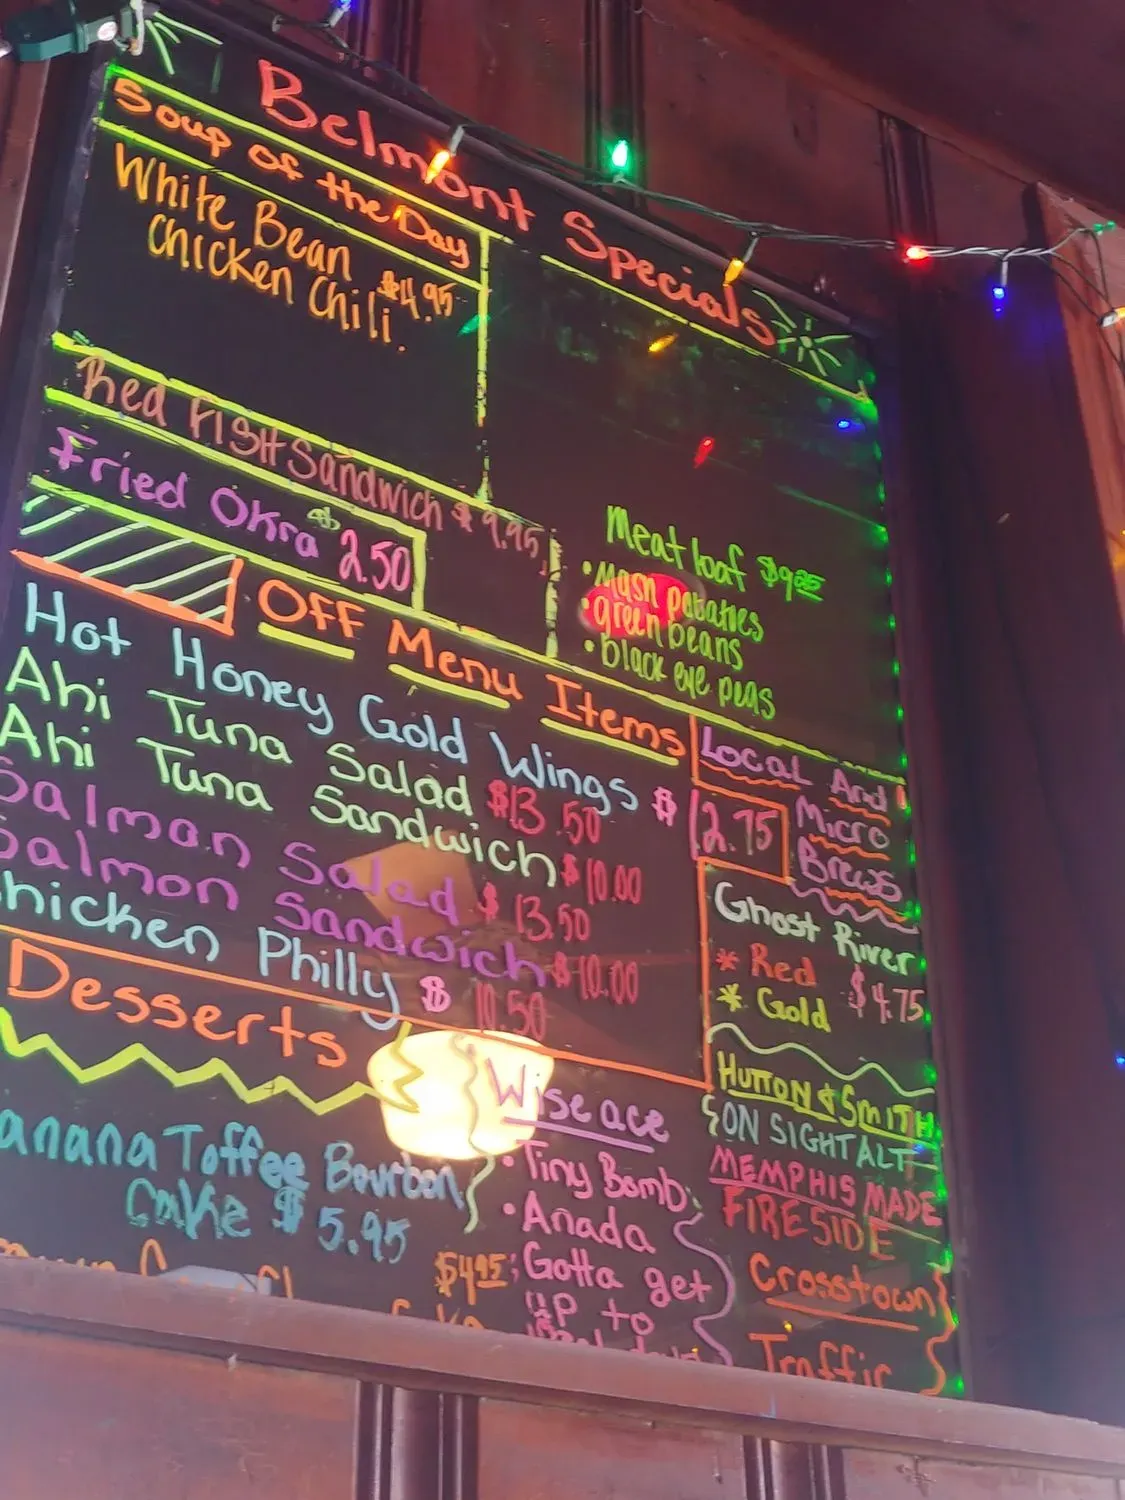 Belmont Specials
Soup of the Day
White Bean
Chicken Chili $4.95
Red FISH Sandwich $9.95
Fried Okra $2.50
Meat loaf $9.25
• Mash potatoes
• green beans
• Black eye peas
OFF Menu Items
Hot Honey Gold Wings $12.75
Ahi Tuna Salad $13.50
Ahi Tuna Sandwich $10.00
Salman Salad $13.50
Salmon Sandwich $10.00
Chicken Philly $10.50
Local And
Micro
Brews
Ghost River
* Red $4.75
* Gold
HUTTON & SMITH
ON SIGHT ALT
MEMPHIS MADE
FIRESIDE
Crosstown
Traffic
Desserts
Banana Toffee Bourbon
Cake $5.95
$4.95
Wiseace
• Tiny Bomb
• Anada
• Gotta get
up to